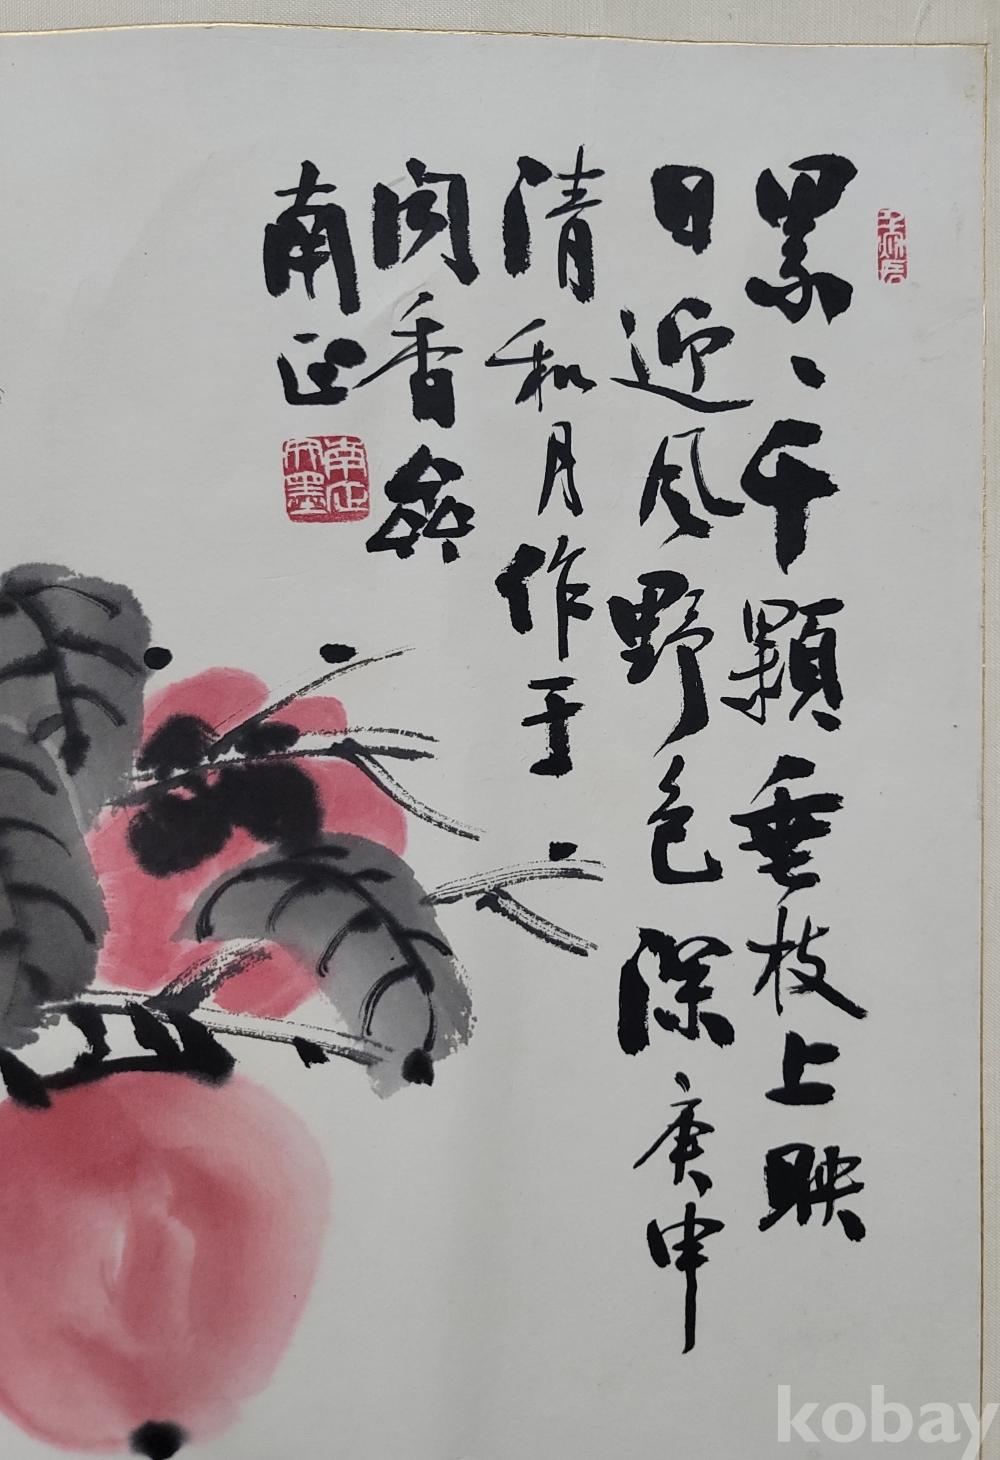 累〻千顆垂枝上映
日迎风野色深庚申
清和月作于
闻香
南正
南正
墨
kobay